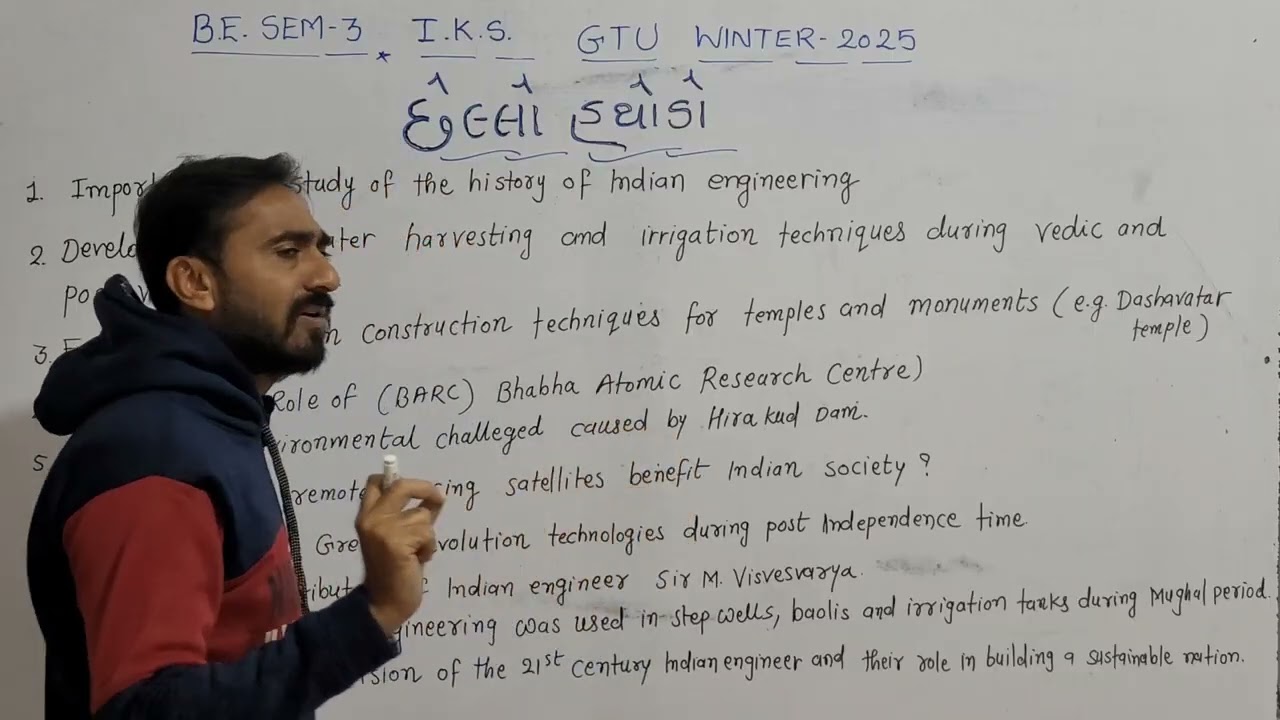 B.E. SEM-3 * I.K.S. GTU WINTER-2025
છેલ્લો હથોડો
1. Impor study of the history of Indian engineering
2. Develo ter harvesting and irrigation techniques during vedic and
po
3. n construction techniques for temples and monuments (e.g. Dashavatar
temple)
Role of (BARC) Bhabha Atomic Research Centre)
5 ironmental challeged caused by Hirakud Dam.
remote ing satellites benefit Indian society ?
Gre volution technologies during post Independence time.
tribut f Indian engineer Sir M. Visvesvarya.
gineering was used in step wells, baolis and irrigation tanks during Mughal period.
sion of the 21st century Indian engineer and their role in building a sustainable nation.